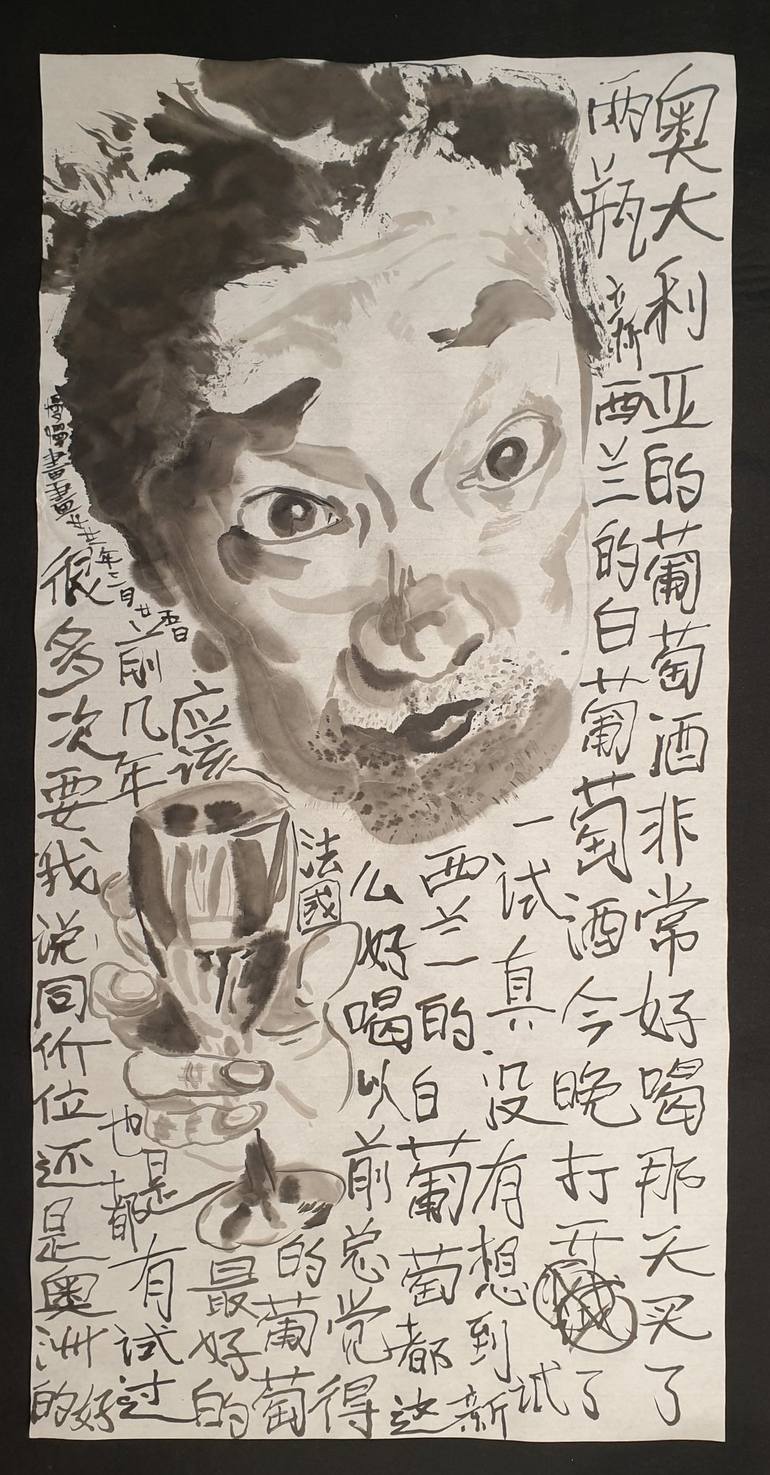 奥大利亚的葡萄酒非常好喝那天买了
两瓶新西兰的白葡萄酒今晚打开试了
一试真没有想到新
西兰的白葡萄都这
么好喝以前总觉得
法國的葡萄
应该是最好的
前几年也都有试过
很多次要我说同价位还是奥洲的好
慢慢畫畫